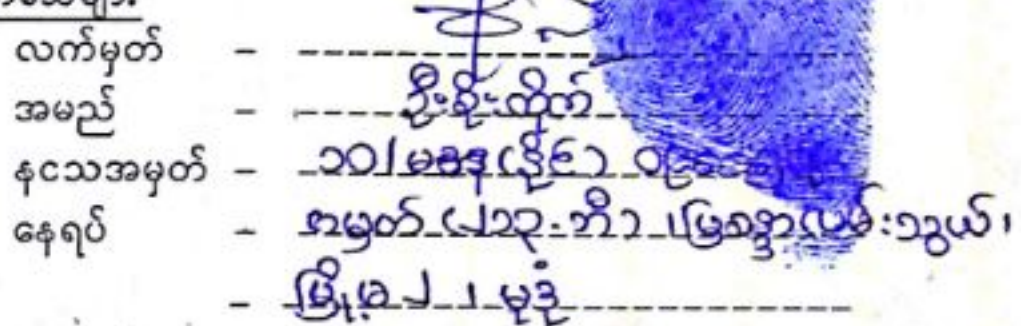 လက်မှတ် -
အမည် - ဦးစိုးတိုက်
နငသအမှတ် - ၁၀/မဒန(နိုင်)
နေရပ် - အမှတ် (၂၁၃-ဘီ)၊ မြစန္ဒာလမ်းသွယ်၊
- မြို့မ ၂ ၊ မုဒုံ